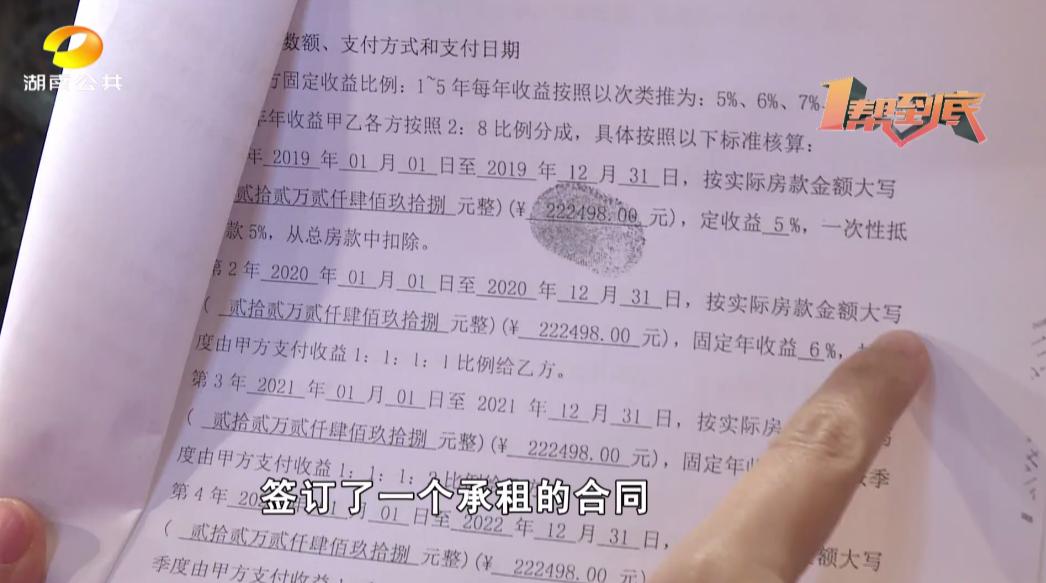 湖南公共
1帮到底
数额、支付方式和支付日期
方固定收益比例：1~5年每年收益按照以次类推为：5%、6%、7%、
年收益甲乙各方按照2：8比例分成，具体按照以下标准核算：
年 2019 年 01 月 01 日至 2019 年 12 月 31 日，按实际房款金额大写
贰拾贰万贰仟肆佰玖拾捌 元整)(¥ 222498.00 元)，定收益 5 %，一次性抵
款5%，从总房款中扣除。
第2年 2020 年 01 月 01 日至 2020 年 12 月 31 日，按实际房款金额大写
( 贰拾贰万贰仟肆佰玖拾捌 元整)(¥ 222498.00 元)，固定年收益 6 %，
度由甲方支付收益1：1：1：1比例给乙方。
第3年 2021 年 01 月 01 日至 2021 年 12 月 31 日，按实际房
( 贰拾贰万贰仟肆佰玖拾捌 元整)(¥ 222498.00 元)，固定年 季
度由甲方支付收益1：1：1：
第4年 01 日至 2022 年 12 月 31 日， 金额大写
( 贰拾贰万贰仟肆佰玖拾捌 元整)(¥ 222498.00 元)
季度由甲方支付收益
签订了一个承租的合同